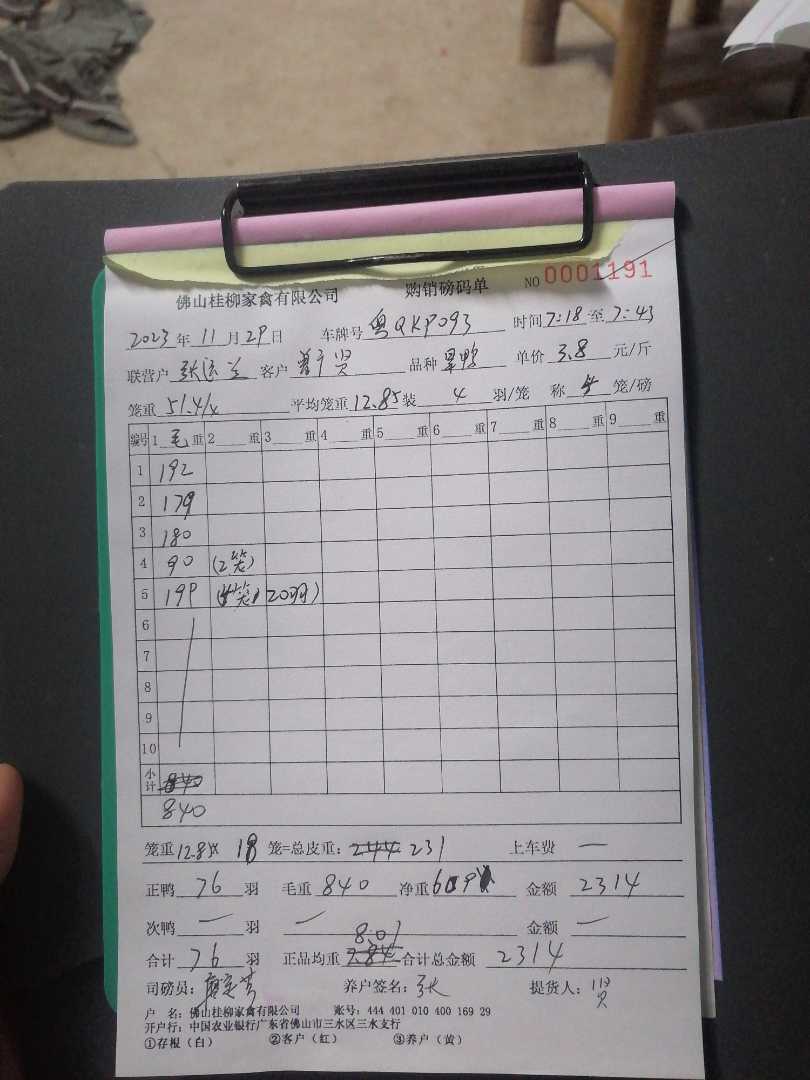 佛山桂柳家禽有限公司 购销磅码单 NO 0001191
2023年11月29日 车牌号 粤QKP093 时间7:18至7:43
联营户 张运兰 客户 贤 品种 单价 3.8 元/斤
笼重 51.4/4 平均笼重12.85装 4 羽/笼 称 4 笼/磅
编号 1毛重 2 重 3 重 4 重 5 重 6 重 7 重 8 重 9 重
1 192
2 179
3 180
4 90 (2笼)
5 199 (4笼, 20羽)
6
7
8
9
10
小计 840
840
笼重12.85x 18 笼=总皮重: 244 231 上车费 一
正鸭 76 羽 毛重 840 净重609 金额 2314
次鸭 一 羽 一 金额 一
8.01
合计 76 羽 正品均重 7.84 合计总金额 2314
司磅员: 养户签名: 张 提货人: 贤
户 名: 佛山桂柳家禽有限公司 账号: 444 401 010 400 169 29
开户行: 中国农业银行广东省佛山市三水区三水支行
①存根(白) ②客户(红) ③养户(黄)